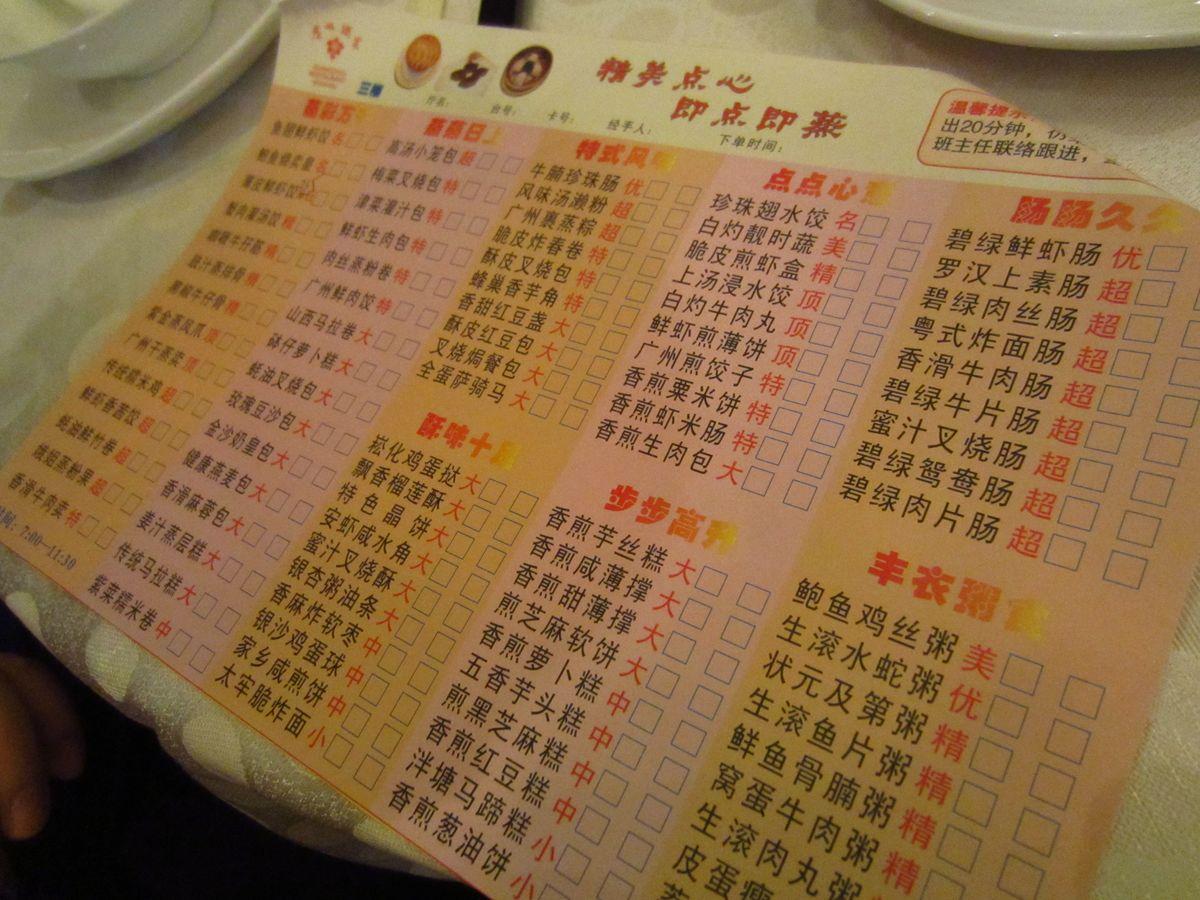 三楼
精美点心
即点即蒸
厅名:
台号:
卡号:
经手人:
下单时间:
温馨提示
出20分钟,
班主任联络跟进,
鱼翅鲜虾饺 名
鲍鱼烧卖皇 名
蟹肉菜汤饺 精
咖喱牛仔筋 精
豉汁蒸排骨 精
黑椒牛仔骨 精
紫金蒸凤爪 顶
广州干蒸卖 顶
传统糯米鸡 超
鲜虾香茜饺 超
蚝油鲜竹卷 超
香滑牛肉卖 特
时间:7:00—11:30
蒸蒸日上
高汤小笼包 超
梅菜叉烧包 特
津菜灌汁包 特
鲜虾生肉包 特
肉丝蒸粉卷 特
广州鲜肉饺 特
山西马拉卷 大
砵仔萝卜糕 大
蚝油叉烧包 大
玫瑰豆沙包 大
金沙奶皇包 大
健康燕麦包 大
香滑麻蓉包 大
姜汁蒸层糕 大
传统马拉糕 大
紫菜糯米卷 中
特式风味
牛腩珍珠肠 优
风味汤濑粉 超
广州裹蒸粽 超
脆皮炸春卷 特
酥皮叉烧包 特
蜂巢香芋角 特
香甜红豆盏 大
酥皮红豆包 大
叉烧焗餐包 大
全蛋萨骑马 大
酥味十足
崧化鸡蛋挞 大
飘香榴莲酥 大
特色晶饼 大
安虾咸水角 大
蜜汁叉烧酥 大
银杏粥油条 大
香麻炸软枣 中
银沙鸡蛋球 中
家乡咸煎饼 中
大牢脆炸面 小
点点心意
珍珠翅水饺 名
白灼靓时蔬 美
脆皮煎虾盒 精
上汤浸水饺 顶
白灼牛肉丸 顶
鲜虾煎薄饼 顶
广州煎饺子 特
香煎粟米饼 特
香煎虾米肠 特
香煎生肉包 大
步步高升
香煎芋丝糕 大
香煎咸薄撑 大
香煎甜薄撑 大
煎芝麻软饼 大
香煎萝卜糕 中
五香芋头糕 中
煎黑芝麻糕 中
香煎红豆糕 中
泮塘马蹄糕 小
香煎葱油饼 小
肠肠久久
碧绿鲜虾肠 优
罗汉上素肠 超
碧绿肉丝肠 超
粤式炸面肠 超
香滑牛肉肠 超
碧绿牛片肠 超
蜜汁叉烧肠 超
碧绿鸳鸯肠 超
碧绿肉片肠 超
丰衣粥食
鲍鱼鸡丝粥 美
生滚水蛇粥 优
状元及第粥 精
生滚鱼片粥 精
鲜鱼骨腩粥 精
窝蛋牛肉粥 精
生滚肉丸粥
皮蛋瘦